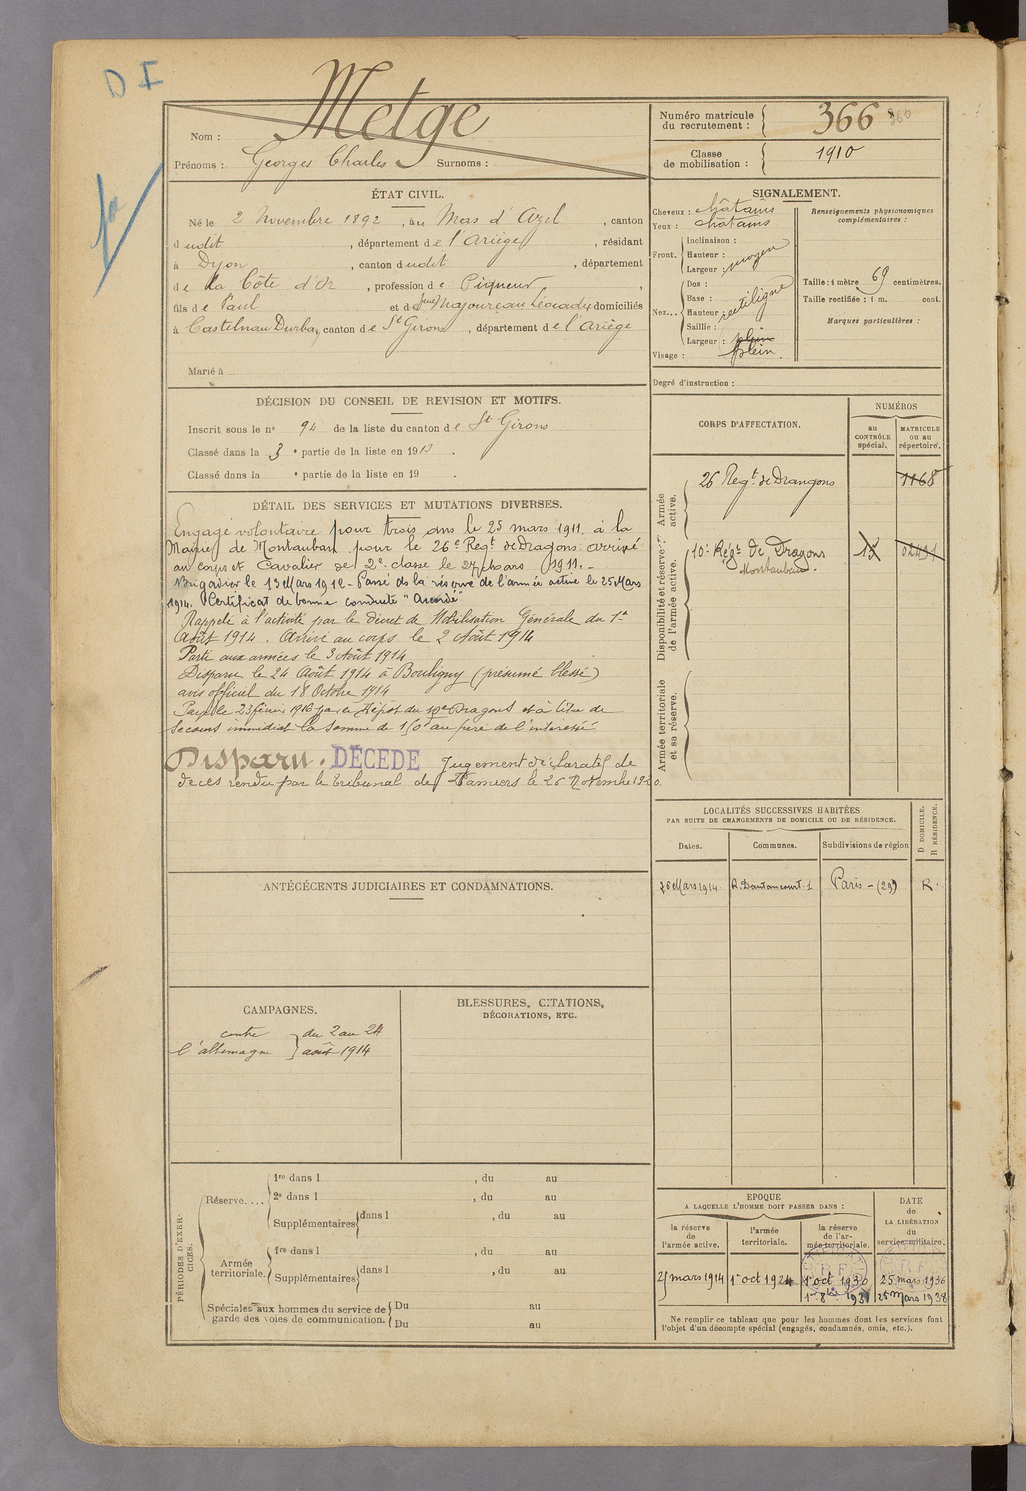 D I
Metge
Nom :
Prénoms : Georges Charles Surnoms :
Numéro matricule du recrutement : 366 366
Classe de mobilisation : 1910
ÉTAT CIVIL.
Né le 2 Novembre 1892, au Mas d'Azil, canton
dudit, département de l'Ariège, résidant
à Dijon, canton dudit, département
de la Côte d'Or, profession de Piqueur
fils de Paul et de Majoureau Léocadie domiciliés
à Castelnau Durban, canton de St Girons, département de l'Ariège
Marié à
SIGNALEMENT.
Cheveux : châtains
Yeux : châtains
Front. Inclinaison :
Hauteur :
Largeur : moyen
Nez... Dos :
Base :
Hauteur : rectiligne
Saillie :
Largeur : plein
Visage : plein.
Renseignements physionomiques complémentaires :
Taille : 1 mètre 69 centimètres.
Taille rectifiée : 1 m. cent.
Marques particulières :
Degré d'instruction :
DÉCISION DU CONSEIL DE REVISION ET MOTIFS.
Inscrit sous le n° 94 de la liste du canton de St Girons
Classé dans la 3e partie de la liste en 1913.
Classé dans la e partie de la liste en 19 .
DÉTAIL DES SERVICES ET MUTATIONS DIVERSES.
Engagé volontaire pour trois ans le 25 mars 1911, à la
Mairie de Montauban pour le 26e Regt de Dragons arrivé
au corps et Cavalier de 2e classe le 27 mars 1911.-
Brigadier le 13 Mars 1912- Passé ds la réserve de l'armée active le 25 Mars
1914. Certificat de bonne conduite "Accordé"
Rappelé à l'activité par le décret de Mobilisation Générale du 1er
Août 1914. Arrivé au corps le 2 Août 1914
Parti aux armées le 3 Août 1914
Disparu le 24 Août 1914 à Bouligny (présumé blessé)
avis officiel du 18 Octobre 1914
Payé le 23 février 1916 par le Dépôt du 10e Dragons et à titre de
secours immédiat la somme de 150f au père de l'intéressé
Disparu. DÉCÉDÉ Jugement déclaratif de
décès rendu par le tribunal de Pamiers le 26 Novembre 1920.
CORPS D'AFFECTATION.
NUMÉROS
au CONTRÔLE spécial.
MATRICULE ou au répertoire.
Armée active.
26 Regt de Dragons 1168
Disponibilité et réserve de l'armée active.
10e Régt de Dragons
Montauban
Armée territoriale et sa réserve.
LOCALITÉS SUCCESSIVES HABITÉES
PAR SUITE DE CHANGEMENTS DE DOMICILE OU DE RÉSIDENCE.
Dates. Communes. Subdivisions de région D DOMICILE. R RÉSIDENCE.
26 Mars 1914 R. Dautancourt. 1 Paris - (29) R.
ANTÉCÉCENTS JUDICIAIRES ET CONDAMNATIONS.
CAMPAGNES.
contre l'allemagne } du 2 au 24 août 1914
BLESSURES, CITATIONS,
DÉCORATIONS, ETC.
PÉRIODES D'EXERCICES.
Réserve.... 1re dans l , du au
2e dans l , du au
Supplémentaires dans l , du au
Armée territoriale. 1re dans l , du au
Supplémentaires dans l , du au
Spéciales aux hommes du service de garde des voies de communication. Du au
Du au
EPOQUE
A LAQUELLE L'HOMME DOIT PASSER DANS :
la réserve de l'armée active.
l'armée territoriale.
la réserve de l'armée territoriale.
DATE de LA LIBÉRATION du service militaire.
25 mars 1914 1er oct 1924 1er oct 1930 25 mars 1936
1er 8bre 1931 25 mars 1938
Ne remplir ce tableau que pour les hommes dont les services font
l'objet d'un décompte spécial (engagés, condamnés, omis, etc.).